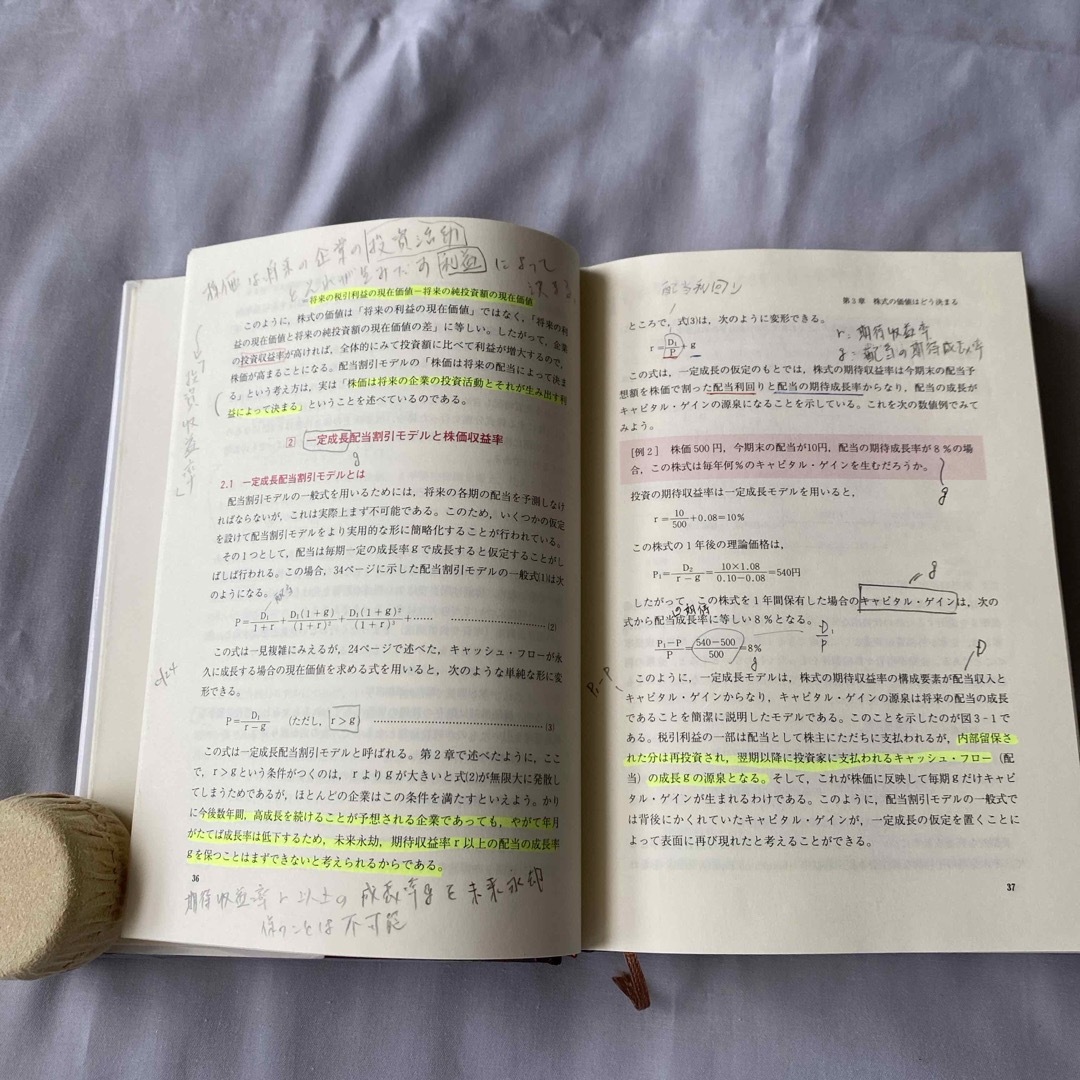 株価は将来の企業の投資活動
とそれが生みだす利益によって
決まる。
将来の税引利益の現在価値－将来の純投資額の現在価値
このように，株式の価値は「将来の利益の現在価値」ではなく，「将来の利
益の現在価値と将来の純投資額の現在価値の差」に等しい。したがって，企業
の投資収益率が高ければ，全体的にみて投資額に比べて利益が増大するので，
株価が高まることになる。配当割引モデルの「株価は将来の配当によって決ま
る」という考え方は，実は「株価は将来の企業の投資活動とそれが生み出す利
益によって決まる」ということを述べているのである。
「投資収益率」
2 一定成長配当割引モデルと株価収益率
g
2.1 一定成長配当割引モデルとは
配当割引モデルの一般式を用いるためには，将来の各期の配当を予測しなけ
ればならないが，これは実際上まず不可能である。このため，いくつかの仮定
を設けて配当割引モデルをより実用的な形に簡略化することが行われている。
その1つとして，配当は毎期一定の成長率gで成長すると仮定することがし
ばしば行われる。この場合，34ページに示した配当割引モデルの一般式(1)は次
のようになる。
配当
P=D₁/(1+r)+D₁(1+g)/(1+r)²+D₁(1+g)²/(1+r)³+…… ……(2)
この式は一見複雑にみえるが，24ページで述べた，キャッシュ・フローが永
久に成長する場合の現在価値を求める式を用いると，次のような単純な形に変
形できる。
P=D₁/(r－g) （ただし，r＞g） ……(3)
この式は一定成長配当割引モデルと呼ばれる。第2章で述べたように，ここ
で，r＞gという条件がつくのは，rよりgが大きいと式(2)が無限大に発散し
てしまうためであるが，ほとんどの企業はこの条件を満たすといえよう。かり
に今後数年間，高成長を続けることが予想される企業であっても，やがて年月
がたてば成長率は低下するため，未来永劫，期待収益率r以上の配当の成長率
gを保つことはまずできないと考えられるからである。
36
期待収益率r以上の成長率gを未来永却
保つことは不可能
配当利回り
第3章 株式の価値はどう決まる
ところで，式(3)は，次のように変形できる。
r=D₁/P+g
r：期待収益率
g：配当の期待成長率
この式は，一定成長の仮定のもとでは，株式の期待収益率は今期末の配当予
想額を株価で割った配当利回りと配当の期待成長率からなり，配当の成長が
キャピタル・ゲインの源泉になることを示している。これを次の数値例でみて
みよう。
[例2] 株価500円，今期末の配当が10円，配当の期待成長率が8％の場
合，この株式は毎年何％のキャピタル・ゲインを生むだろうか。
g
投資の期待収益率は一定成長モデルを用いると，
r=10/500+0.08=10％
この株式の1年後の理論価格は，
P₁=D₂/(r－g)=10×1.08/(0.10－0.08)=540円
g
したがって，この株式を1年間保有した場合のキャピタル・ゲインは，次の
の期待
式から配当成長率に等しい8％となる。
(P₁－P)/P=(540－500)/500=8％
g
D₁/P
P
P₁－P
このように，一定成長モデルは，株式の期待収益率の構成要素が配当収入と
キャピタル・ゲインからなり，キャピタル・ゲインの源泉は将来の配当の成長
であることを簡潔に説明したモデルである。このことを示したのが図3-1で
ある。税引利益の一部は配当として株主にただちに支払われるが，内部留保さ
れた分は再投資され，翌期以降に投資家に支払われるキャッシュ・フロー（配
当）の成長gの源泉となる。そして，これが株価に反映して毎期gだけキャピ
タル・ゲインが生まれるわけである。このように，配当割引モデルの一般式で
は背後にかくれていたキャピタル・ゲインが，一定成長の仮定を置くことに
よって表面に再び現れたと考えることができる。
37